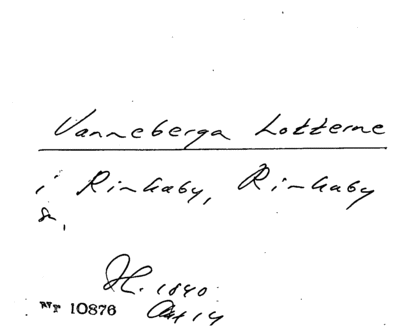 Vanneberga Lotterne
i Rinkaby, Rinkaby
sn,
H. 1840
AVT 10876 Akt 14